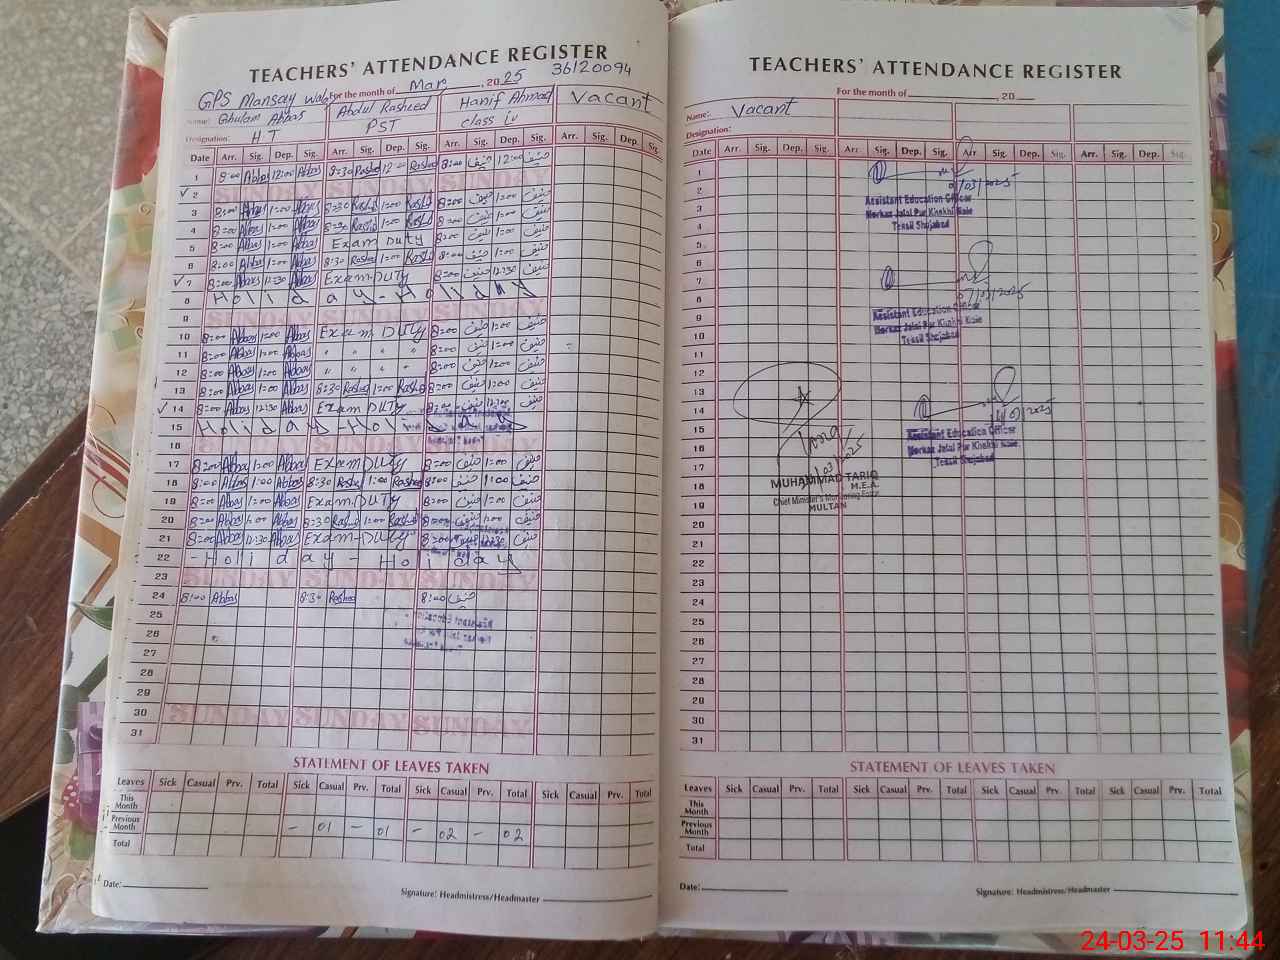 TEACHERS' ATTENDANCE REGISTER
36120094
GPS Mansay For the month of Mar, 2025
Name: Ghulam Abbas Abdul Rasheed Hanif Ahmad Vacant
Designation: HT PST Class iv
Date Arr. Sig. Dep. Sig. Arr. Sig. Dep. Sig. Arr. Sig. Dep. Sig. Arr. Sig. Dep. Sig.
1 8:00 Abbas 12:00 Abbas 8:30 Rashed 12:00 Rashed 8:00 حنیف 12:00 حنیف
✓ 2 SUNDAY SUNDAY SUNDAY
3 8:00 Abbas 1:00 Abbas 8:30 Rashed 1:00 Rashed 8:00 حنیف 1:00 حنیف
4 8:00 Abbas 1:00 Abbas 8:30 Rashed 1:00 Rashed 8:00 حنیف 1:00 حنیف
5 8:00 Abbas 1:00 Abbas Exam Duty 8:00 حنیف 1:00 حنیف
6 8:00 Abbas 1:00 Abbas 8:30 Rashed 1:00 Rashed 8:00 حنیف 1:00 حنیف
✓ 7 8:00 Abbas 12:30 Abbas Exam-DUTY 8:00 حنیف 12:30 حنیف
8 Holiday-Holiday
9 SUNDAY SUNDAY SUNDAY
10 8:00 Abbas 1:00 Abbas Exam DUTY 8:00 حنیف 1:00 حنیف
11 8:00 Abbas 1:00 Abbas " " " " 8:00 حنیف 1:00 حنیف
12 8:00 Abbas 1:00 Abbas " " " " 8:00 حنیف 1:00 حنیف
13 8:00 Abbas 1:00 Abbas 8:30 Rashed 1:00 Rashed 8:00 حنیف 1:00 حنیف
✓ 14 8:00 Abbas 12:30 Abbas Exam DUTY 8:00 حنیف 12:30 حنیف
15 Holiday-Holiday
16 SUNDAY SUNDAY SUNDAY
17 8:00 Abbas 1:00 Abbas Exam DUTY 8:00 حنیف 1:00 حنیف
18 8:00 Abbas 1:00 Abbas 8:30 Rashed 1:00 Rashed 8:00 حنیف 1:00 حنیف
19 8:00 Abbas 1:00 Abbas Exam-DUTY 8:00 حنیف 1:00 حنیف
20 8:00 Abbas 1:00 Abbas 8:30 Rashed 1:00 Rashed 8:00 حنیف 1:00 حنیف
21 8:00 Abbas 12:30 Abbas Exam-Duty 8:00 حنیف 12:30 حنیف
22 -Holiday-Holiday
23 SUNDAY SUNDAY SUNDAY
24 8:00 Abbas 8:30 Rashed 8:00 حنیف
25
26
27
28
29
30 SUNDAY SUNDAY SUNDAY
31
STATEMENT OF LEAVES TAKEN
Leaves Sick Casual Prv. Total Sick Casual Prv. Total Sick Casual Prv. Total Sick Casual Prv. Total
This Month
Previous Month - 01 - 01 - 02 - 02
Total
Date:
Signature: Headmistress/Headmaster
TEACHERS' ATTENDANCE REGISTER
For the month of , 20
Name: Vacant
Designation:
Date Arr. Sig. Dep. Sig. Arr. Sig. Dep. Sig. Arr. Sig. Dep. Sig. Arr. Sig. Dep. Sig.
1
2 /03/2025
3 Assistant Education Officer
Markaz Jalal Pur Khakhi
4 Tehsil Shujabad
5
6
7
8 07/03/2025
9 Assistant Education Officer
Markaz Jalal Pur Khakhi
10 Tehsil Shujabad
11
12
13
14 14/03/2025
15 Assistant Education Officer
16 Markaz Jalal Pur Khakhi
Tehsil Shujabad
17
18 MUHAMMAD TARIQ
M.E.A.
Chief Minister's Monitoring Force
19 MULTAN
20
21
22
23
24
25
26
27
28
29
30
31
STATEMENT OF LEAVES TAKEN
Leaves Sick Casual Prv. Total Sick Casual Prv. Total Sick Casual Prv. Total Sick Casual Prv. Total
This Month
Previous Month
Total
Date:
Signature: Headmistress/Headmaster
24-03-25 11:44